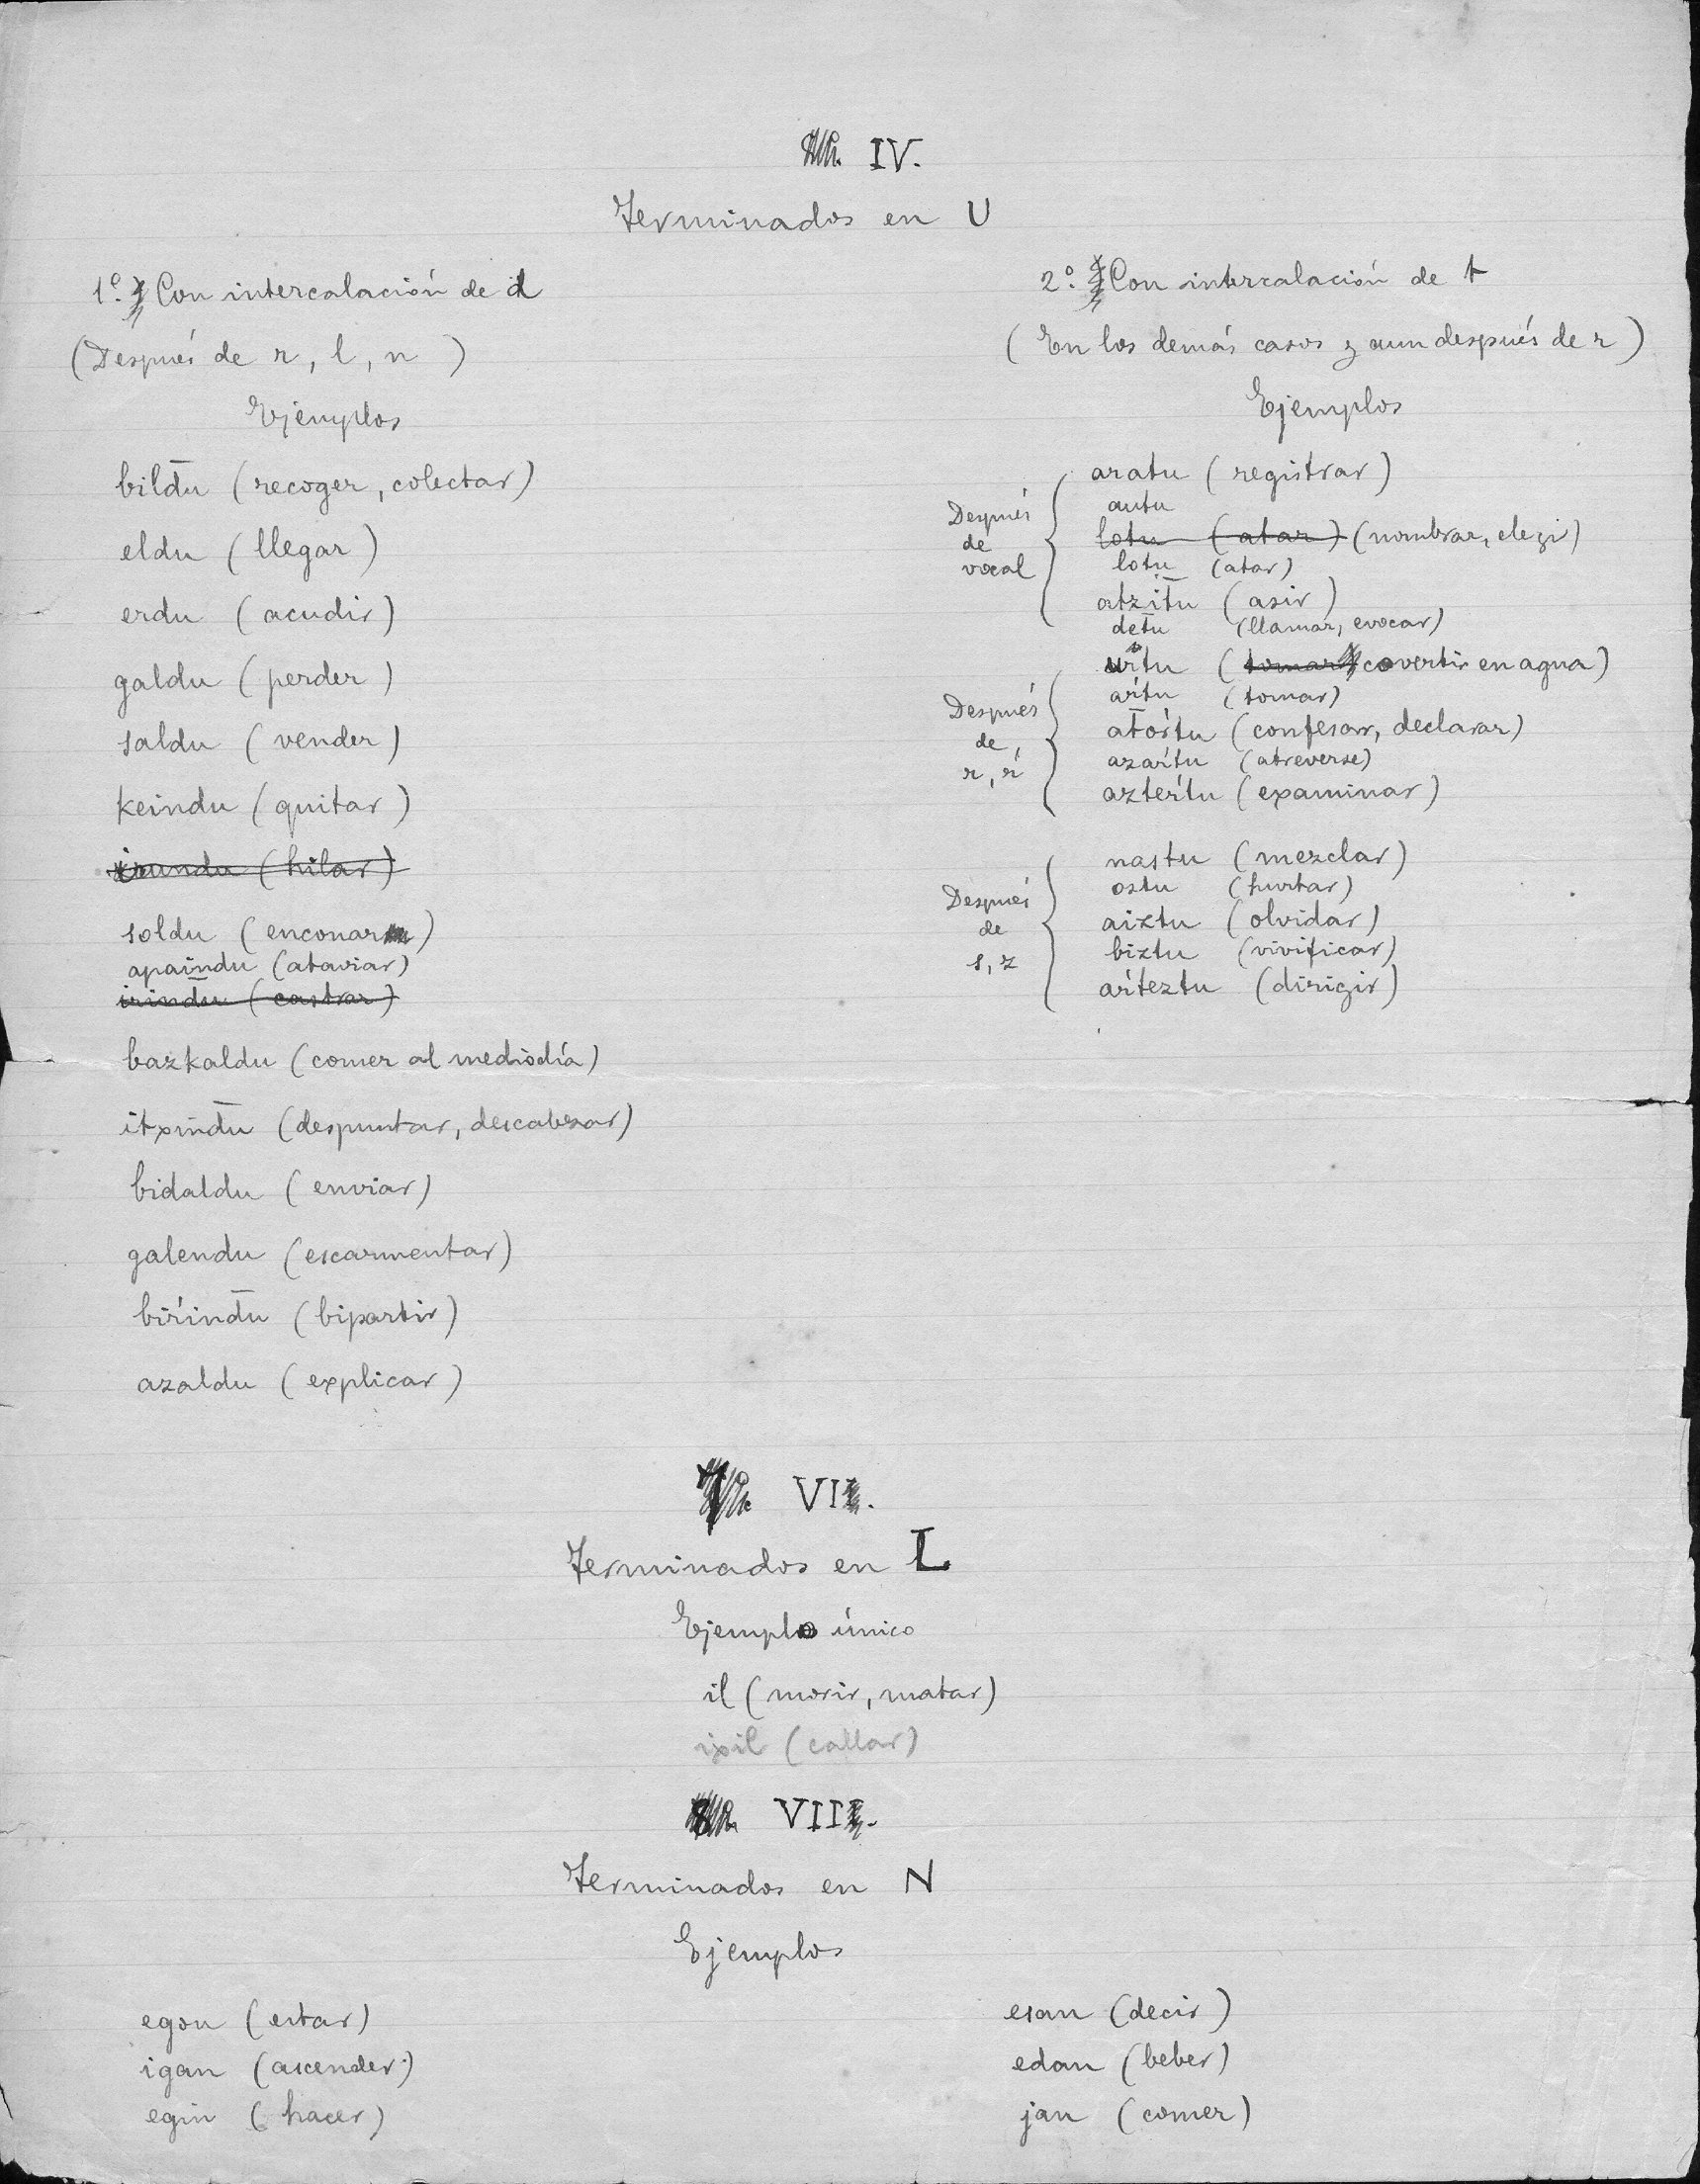 IV.
Terminados en U
1º. Con intercalación de d
(Después de r, l, n )
Ejemplos
bild̄u (recoger, colectar)
eldu (llegar)
erdu (acudir)
galdu (perder)
saldu (vender)
keindu (quitar)
irundu (hilar)
soldu (enconar)
apaind̄u (ataviar)
irindu (castrar)
bazkaldu (comer al mediodía)
itxind̄u (despuntar, descabezar)
bidaldu (enviar)
galendu (escarmentar)
biŕind̄u (bipartir)
azaldu (explicar)
2º. Con intercalación de t
(En los demás casos y aun después de r)
Ejemplos
Después de vocal
aratu (registrar)
autu
lotu (atar) (nombrar, elegir)
lotu (atar)
atzit̄u (asir)
det̄u (llamar, evocar)
Después de r, ŕ
uŕtu (tomar covertir en agua)
aŕtu (tomar)
at̄oŕtu (confesar, declarar)
azaŕtu (atreverse)
azteŕtu (examinar)
Después de s, z
nastu (mezclar)
ostu (hurtar)
aiztu (olvidar)
biztu (vivificar)
aŕteztu (dirigir)
VII.
Terminados en L
Ejemplo único
il (morir, matar)
ixil (callar)
VIII.
Terminados en N
Ejemplos
egon (estar)
igan (ascender)
egin (hacer)
esan (decir)
edan (beber)
jan (comer)